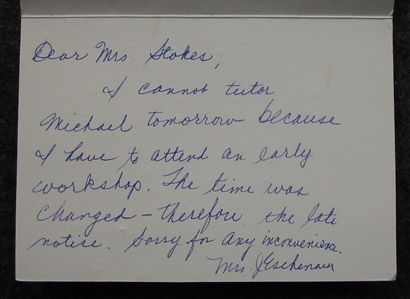 Dear Mrs. Stokes,
I cannot tutor
Michael tomorrow because
I have to attend an early
workshop. The time was
changed - therefore the late
notice. Sorry for any inconvenience.
Mrs.